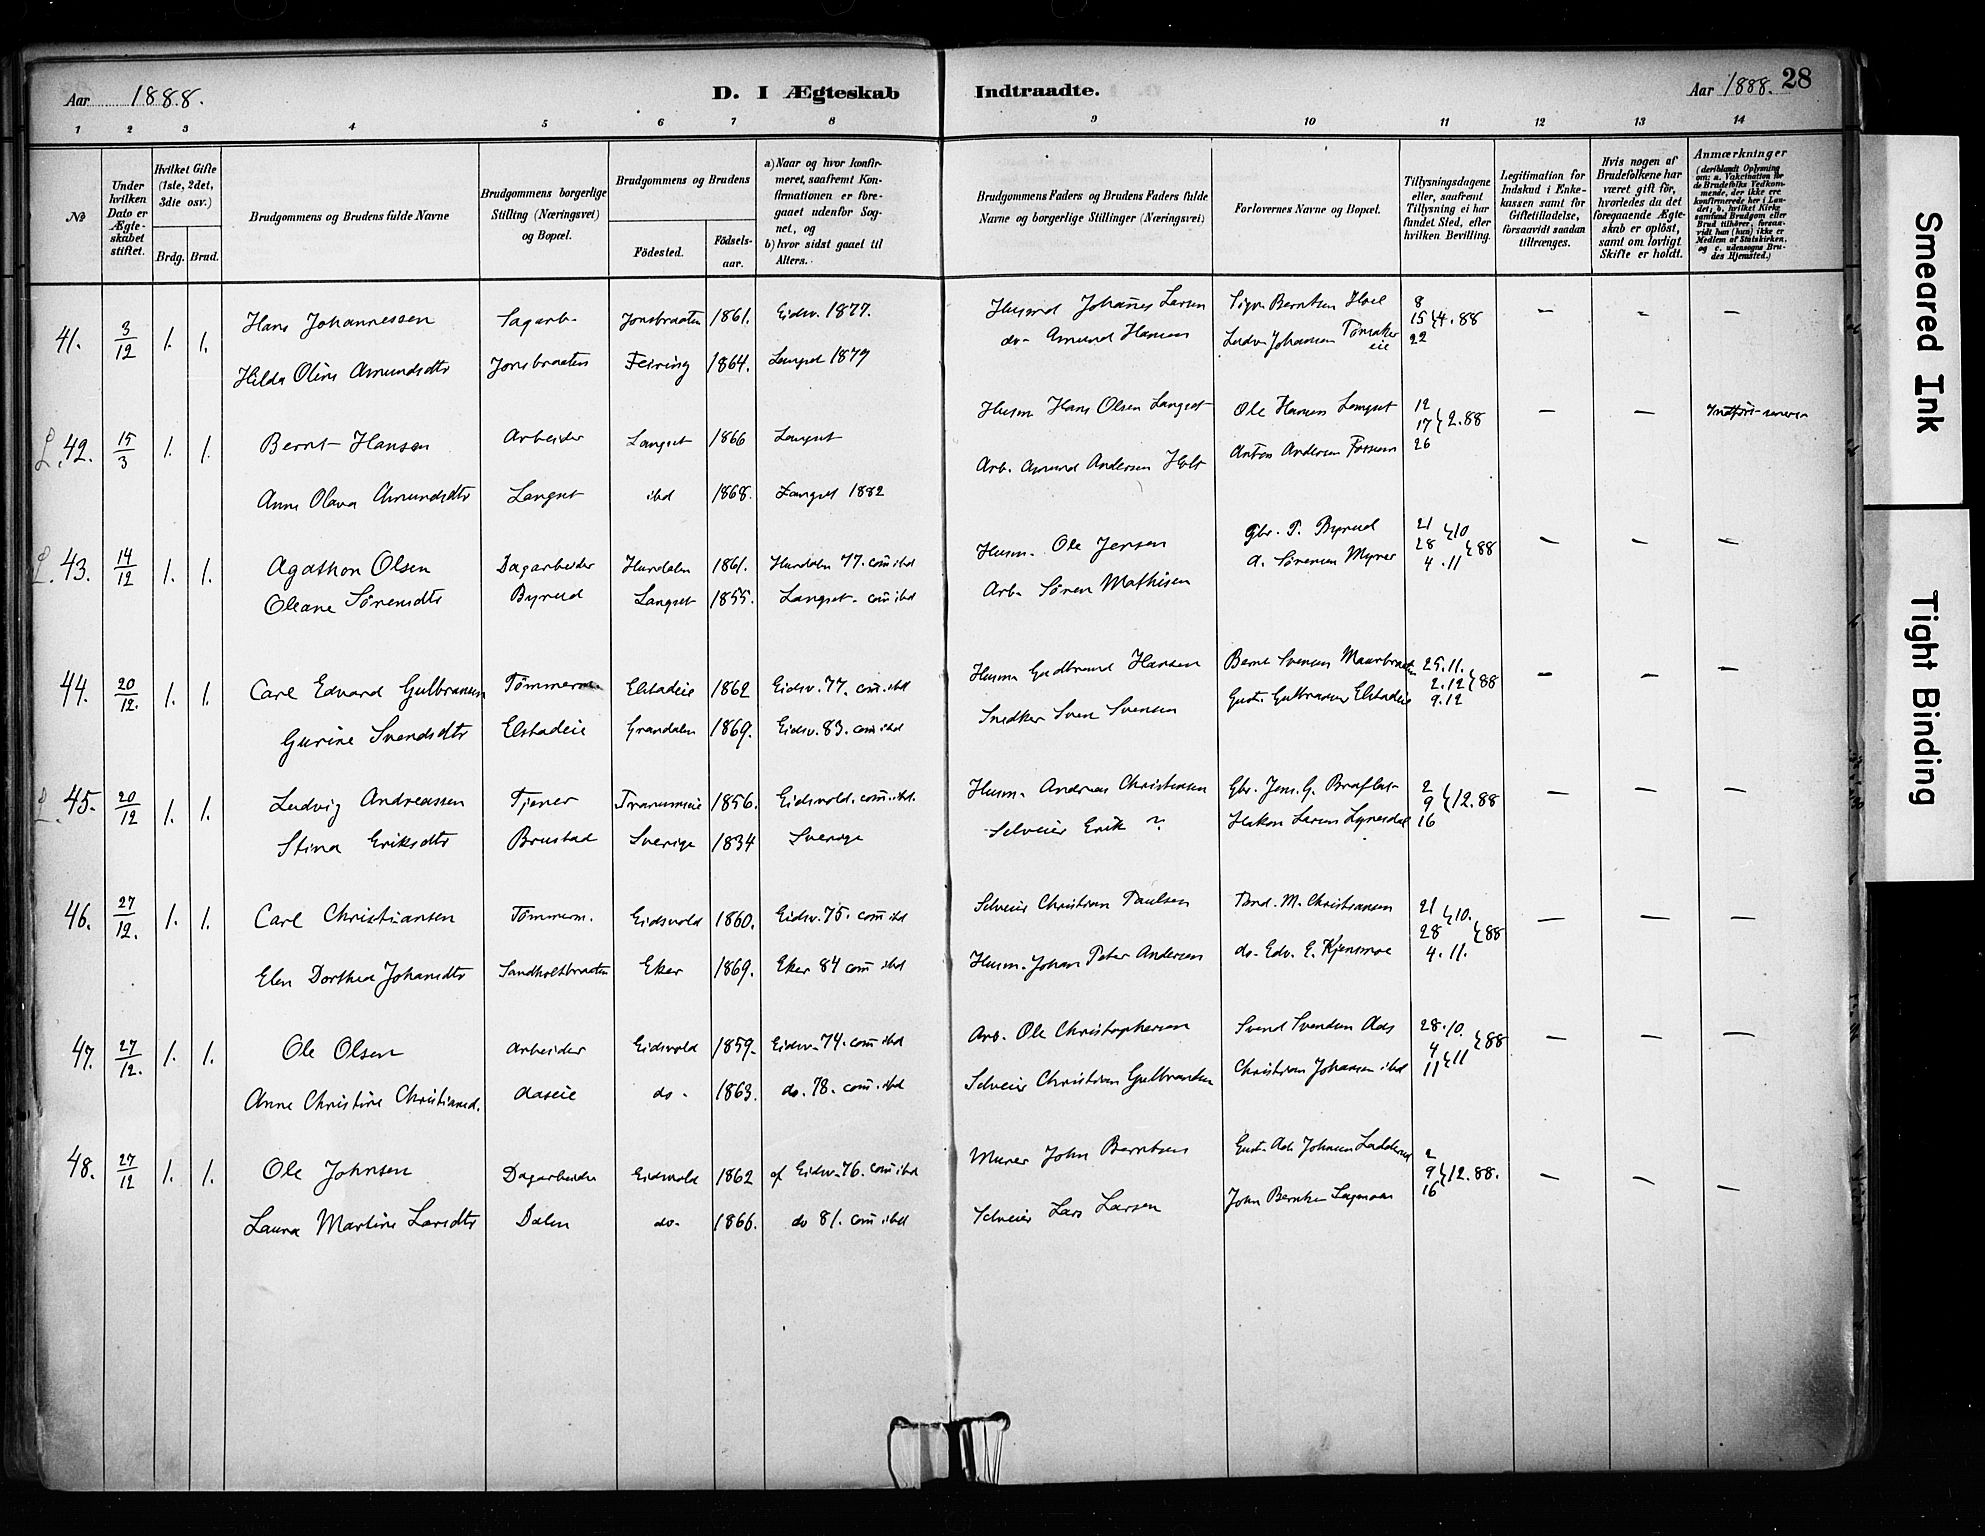 Aar 1888.
D. I Ægteskab Indtraadte.
Aar 1888. 28
1 2 3 4 5 6 7 8 9 10 11 12 13 14
№
Under hvilken Dato er Ægteskabet stiftet.
Hvilket Gifte (1ste, 2det, 3die osv.)
Brdg. Brud.
Brudgommens og Brudens fulde Navne
Brudgommens borgerlige Stilling (Næringsvei) og Bopæl.
Brudgommens og Brudens
Fødested. Fødselsaar.
a) Naar og hvor konfirmeret, saafremt Konfirmationen er foregaaet udenfor Sognet, og
b) hvor sidst gaaet til Alters.
Brudgommens Faders og Brudens Faders fulde Navne og borgerlige Stillinger (Næringsvei)
Forlovernes Navne og Bopæl.
Tillysningsdagene eller, saafremt Tillysning ei har fundet Sted, efter hvilken Bevilling.
Legitimation for Indskud i Enkekassen samt for Giftetilladelse, forsaavidt saadan tiltrænges.
Hvis nogen af Brudefolkene har været gift før, hvorledes da det foregaaende Ægteskab er opløst, samt om lovligt Skifte er holdt.
Anmærkninger
(deriblandt Oplysning om: a. Vakcination for de Brudefolks Vedkommende, der ikke ere konfirmerede her i Landet; b. hvilket Kirkesamfund Brudgom eller Brud tilhører, forsaavidt han (hun) ikke er Medlem af Statskirken, og c. udensogns Brudes Hjemsted.)
41. 3/12 1. 1. Hans Johannessen Sagarb. Jonsbraaten 1861. Eidsv. 1877. Husmd Johannes Larsen Sigv. Berntsen Hoel 8 15 22 4.88 - - -
Hilda Oline Amundsdtr Jonsbraaten Feiring 1864. Langset 1879 do- Amund Hansen Ludv. Johansen
L. 42. 15/3 1. 1. Bernt Hansen Arbeider Langset 1866 Langset Husm Hans Olsen Langset Ole Hansen Langset 12 17 26 2.88 - -
Anne Olava Amundsdtr Langset ibd 1868. Langset 1882 Arb. Amund Andersen Holt Anton Andersen
L. 43. 14/12 1. 1. Agathon Olsen Dagarbeider Hurdalen 1861. Hurdalen 77. com ibd Husm. Ole Jensen Gbr. P. Byrud 21 28 10 4.11 88 - - -
Oleane Sørensdtr Byrud Langset 1855. Langset. com ibd Arb. Søren Mathisen A. Sørensen Myrer
44. 20/12. 1. 1. Carl Edvard Gulbransen Tømmerm. Elstadeie 1862 Eidsv. 77. com. ibd Husm Gudbrand Hansen Bernt Svensen 25.11. 2.12 9.12 88 - - -
Gurine Svendsdtr Elstadeie Grandalen 1869. Eidsv. 83. com ibd Snedker Sven Svensen Gust. Gulbransen Elstadeie
L. 45. 20/12 1. 1. Ludvig Andreassen Tjener 1856. Eidsvold. com. ibd. Husm. Andreas Christensen Gbr. Jens. G. 2 9 16 12.88 - - -
Stina Eriksdtr Brustad Sverige 1834 Sverige Selveier Erik ? Hakon Larsen
46. 27/12. 1. 1. Carl Christiansen Tømmerm. Eidsvold 1860. Eidsv. 75. com ibd Selveier Christian Paulsen M. Christiansen 21 28 10. 4.11. 88 - - -
Elen Dorthea Johansdtr Sandholtbraaten Eker 1869. Eker 84 com ibd Husm. Johan Peter Andersen do. Edv. E. Kjensmoe
47. 27/12. 1. 1. Ole Olsen Arbeider Eidsvold 1859. Eidsv. 74. com ibd Arb. Ole Christophersen Svend Svendsen Aas 28.10. 4 11 11 88 - - -
Anne Christine Christiansd. Aaseie do. 1863. do. 78. com. ibd Selveier Christian Gulbrandsen Christian Johansen ibd
48. 27/12 1. 1. Ole Johnsen Dagarbeider Eidsvold 1862 af Eidsv. 76. com ibd Murer John Berntsen Gust. Ad. Johansen 2 9 16 12.88. - - -
Laura Martine Larsdtr Dalen do- 1866. do 81. com ibd Selveier Lars Larsen John Berntsen
Smeared Ink
Tight Binding